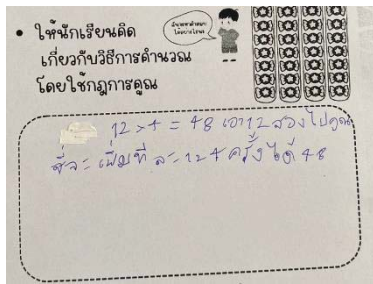 • ให้นักเรียนคิด
เกี่ยวกับวิธีการคำนวณ
โดยใช้กฎการคูณ
12 × 4 = 48 เอา 12 ลองไปคูณ
เพิ่มที ละ 12 4 ครั้ง ได้ 48